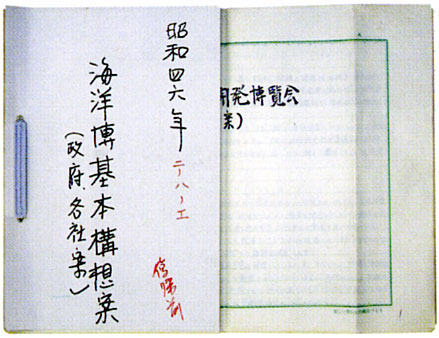 昭和四六年
ニーハーエ
海洋博基本構想案
(政府各社案)
復帰前
開発博覧会
案)